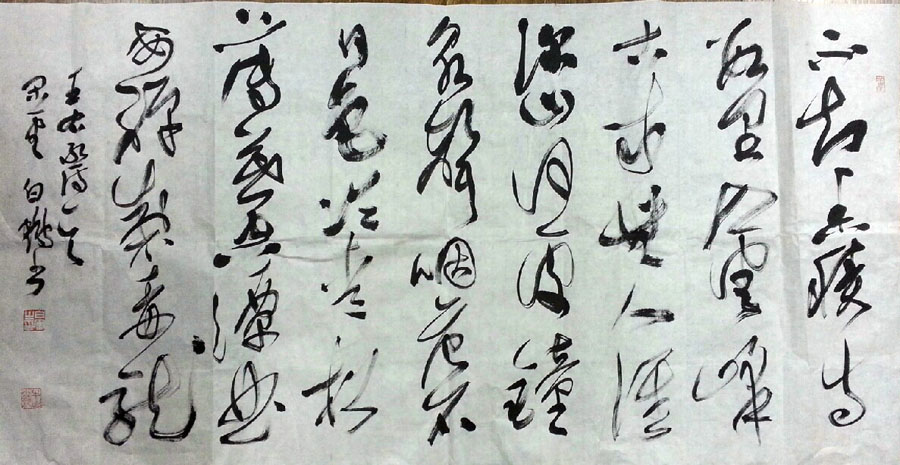 不知香積寺
數里入雲峰
古木無人徑
深山何處鐘
泉聲咽危石
日色冷青松
薄暮空潭曲
安禪制毒龍
王右丞詩一首
雲 白鶴書